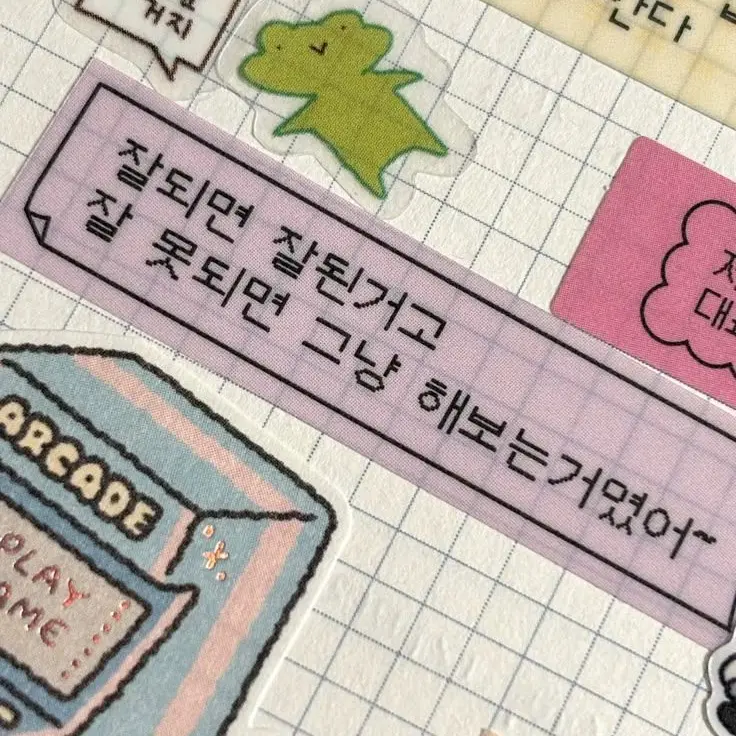 거지
한다
잘되면 잘된거고
잘 못되면 그냥 해보는거였어~
ARCADE
PLAY